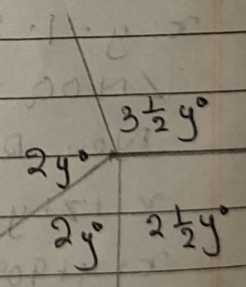 3 1/2 y°
2y°
2y° 2 1/2 y°